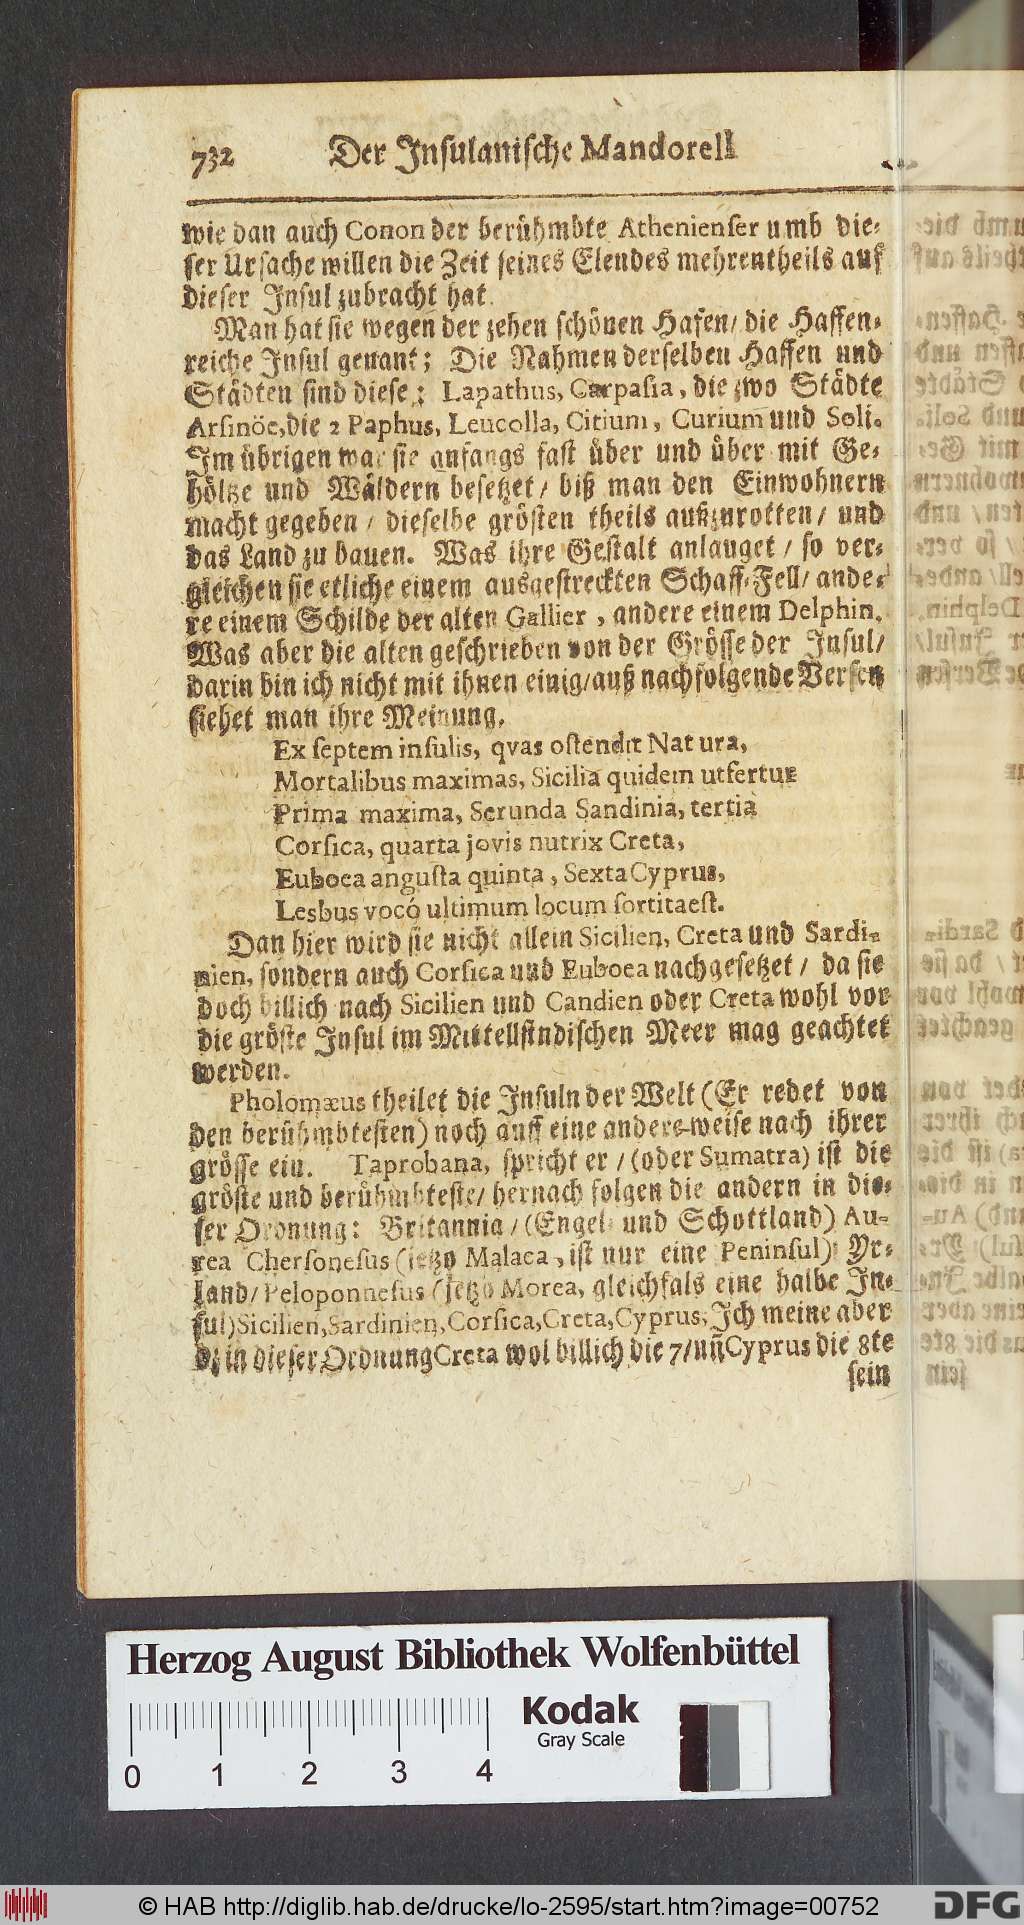 732 Der Insulanische Mandorell
wie dan auch Conon der berühmbte Athenienser umb die-
ser Ursache willen die Zeit seines Elendes mehrentheils auf
dieser Insul zubracht hat.
Man hat sie wegen der zehen schönen Hafen/ die Haffen-
reiche Insul genant; Die Nahmen derselben Haffen und
Städten sind diese: Lapathus, Carpasia, die zwo Städte
Arsinöe, die 2 Paphus, Leucolla, Citium, Curium und Soli.
Im übrigen war sie anfangs fast über und über mit Ge-
höltze und Wäldern besetzet/ biß man den Einwohnern
macht gegeben/ dieselbe grösten theils außzurotten/ und
das Land zu bauen. Was ihre Gestalt anlanget/ so ver-
gleichen sie etliche einem ausgestreckten Schaff-Fell/ ande-
re einem Schilde der alten Gallier, andere einem Delphin.
Was aber die alten geschrieben von der Grösse der Insul/
darin bin ich nicht mit ihnen einig/ auß nachfolgende Versen
siehet man ihre Meinung.
Ex septem insulis, qvas ostendit Natura,
Mortalibus maximas, Sicilia quidem utfertur
Prima maxima, Secunda Sandinia, tertia
Corsica, quarta jovis nutrix Creta,
Euboea angusta quinta, Sexta Cyprus,
Lesbus vocó ultimum locum sortitaest.
Dan hier wird sie nicht allein Sicilien, Creta und Sardi-
nien, sondern auch Corsica und Euboea nachgesetzet/ da sie
doch billich nach Sicilien und Candien oder Creta wohl vor
die gröste Insul im Mittelländischen Meer mag geachtet
werden.
Pholomæus theilet die Insuln der Welt (Er redet von
den berühmbtesten) noch auff eine andere weise nach ihrer
grösse ein. Taprobana, spricht er/ (oder Sumatra) ist die
gröste und berühmbteste/ hernach folgen die andern in die-
ser Ordnung: Britannia/ (Engel- und Schottland) Au-
rea Chersonesus (jetzo Malaca, ist nur eine Peninsul) Yr-
land/ Peloponnesus (jetzo Morea, gleichfals eine halbe In-
sul) Sicilien, Sardinien, Corsica, Creta, Cyprus, Ich meine aber
dz in dieser Ordnung Creta wol billich die 7/ uñ Cyprus die 8te
sein
Herzog August Bibliothek Wolfenbüttel
Kodak
Gray Scale
0 1 2 3 4
© HAB http://diglib.hab.de/drucke/lo-2595/start.htm?image=00752
DFG